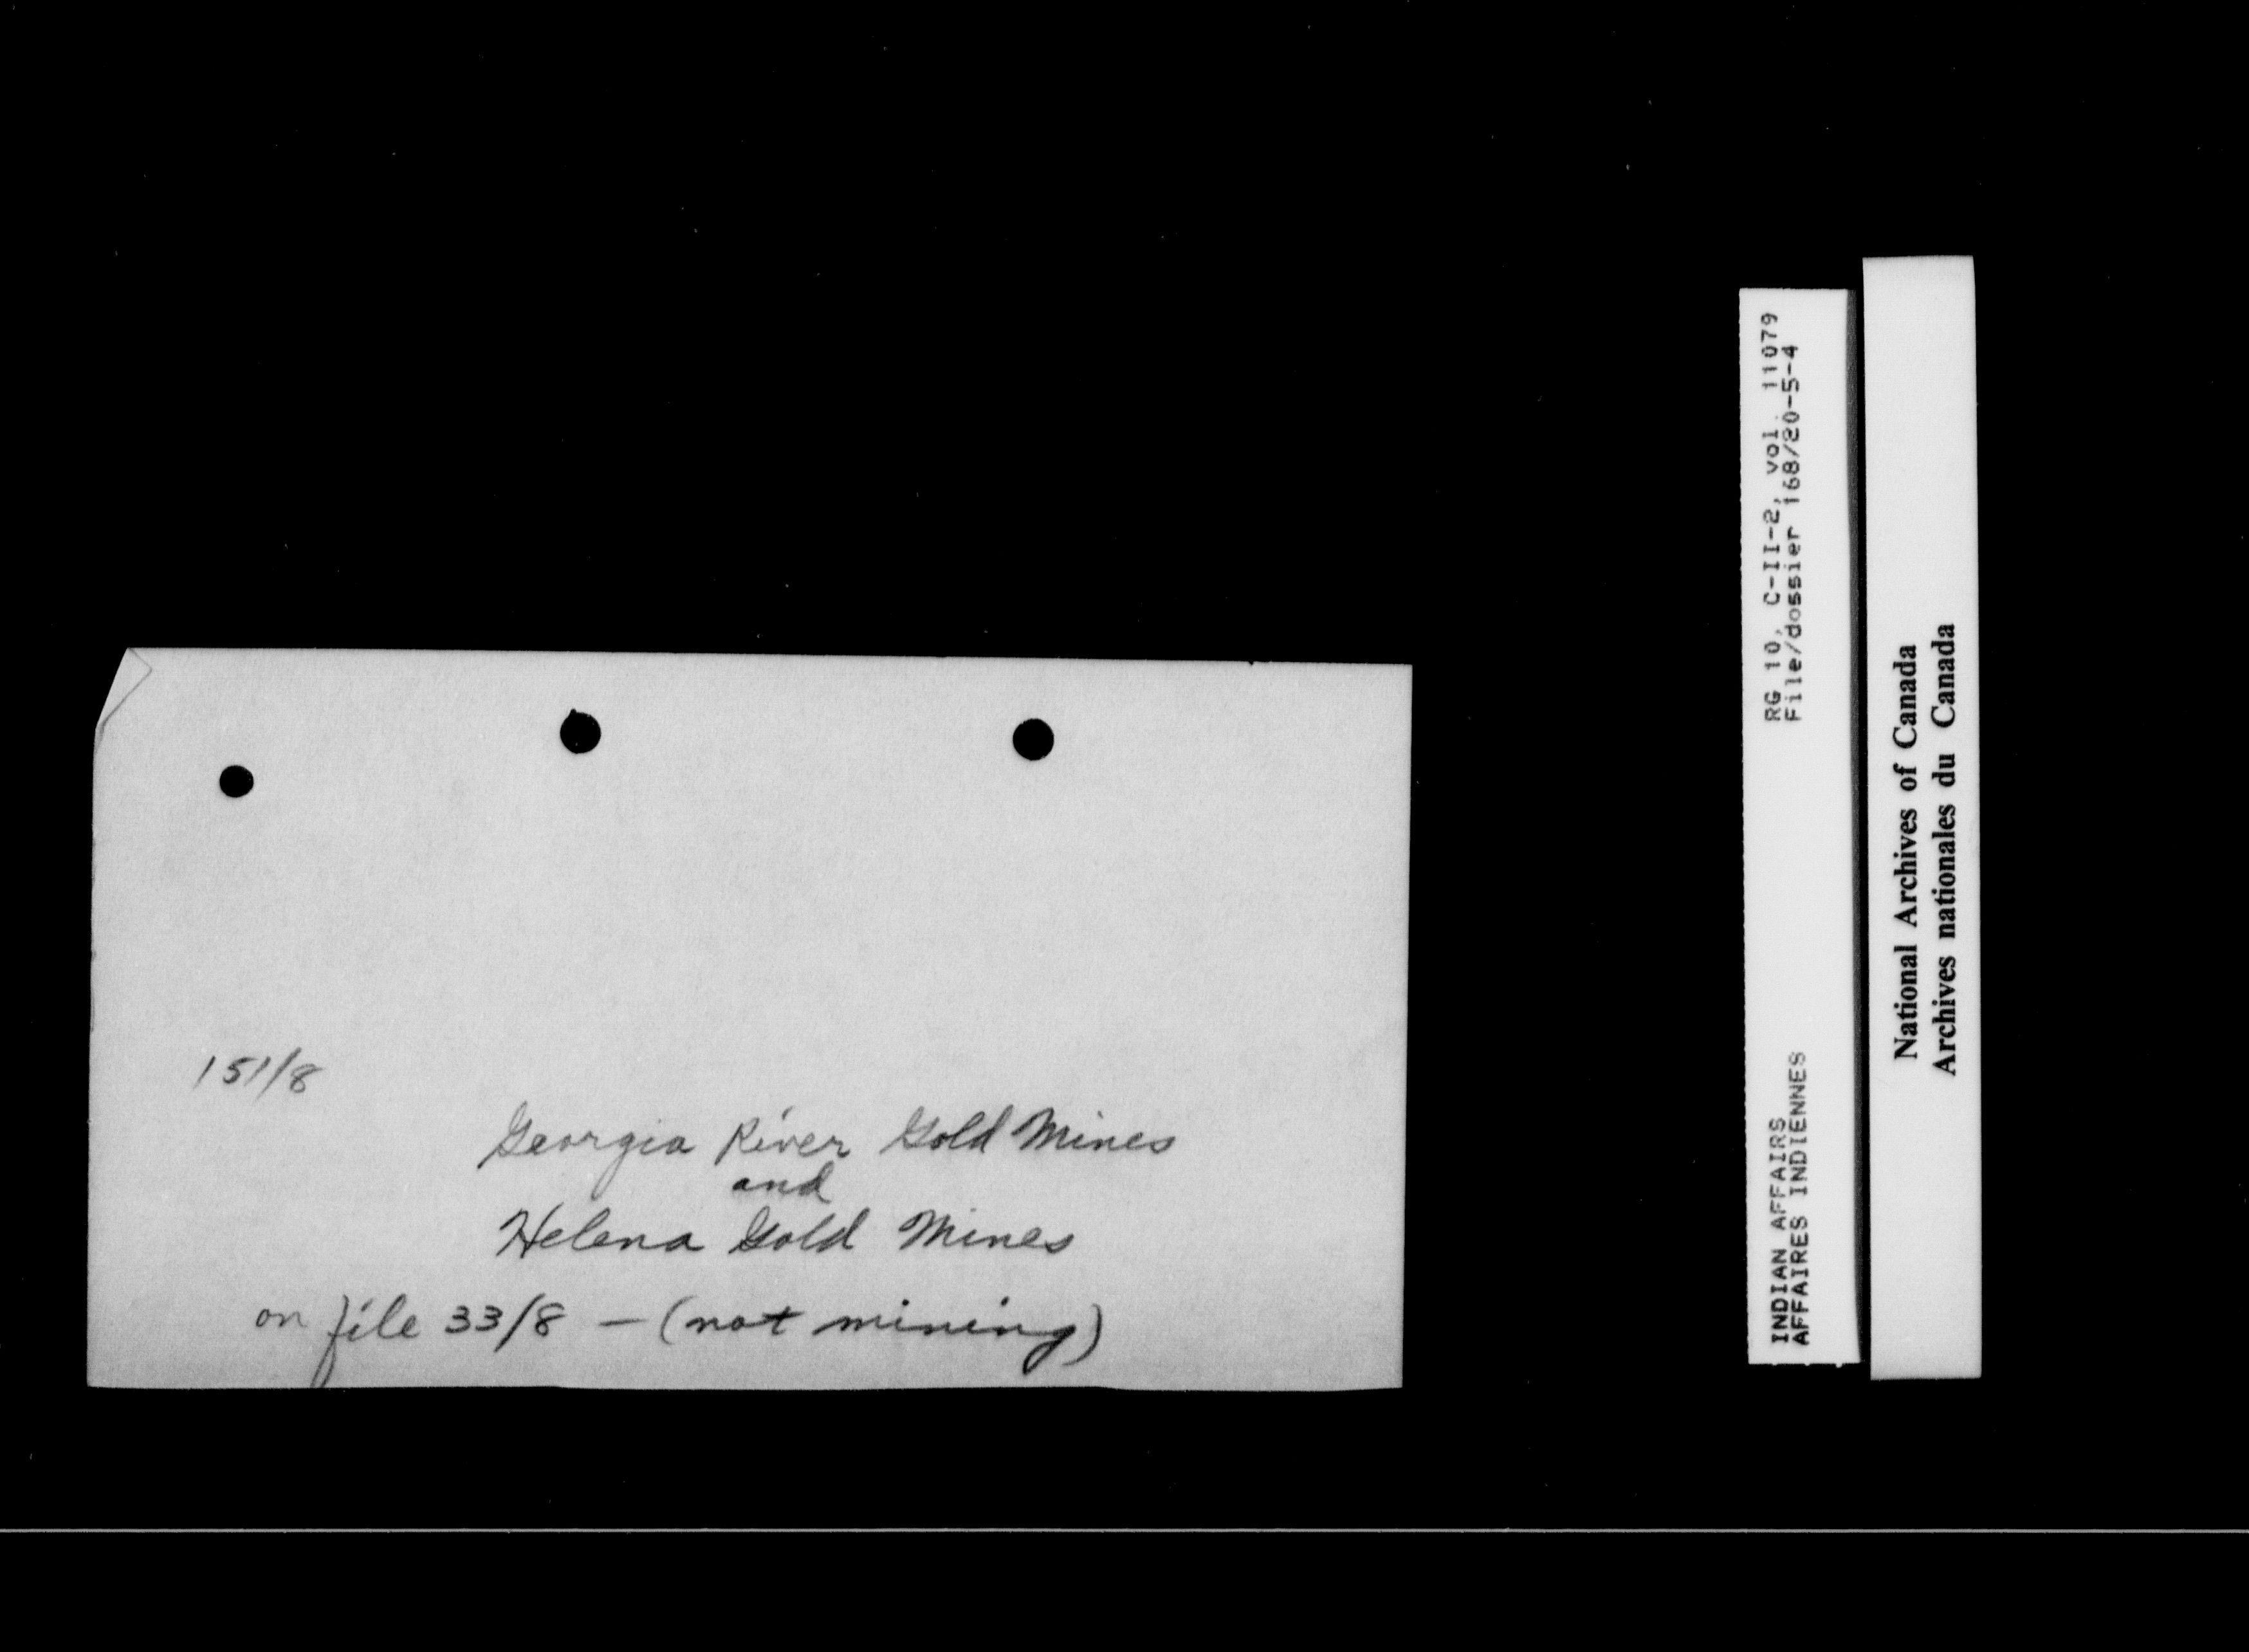 151/8
Georgia River Gold Mines
and
Helena Gold Mines
on file 33/8 - (not mining)
RG 10, C-II-2, vol. 11079
File/dossier 168/20-5-4
INDIAN AFFAIRS
AFFAIRES INDIENNES
National Archives of Canada
Archives nationales du Canada